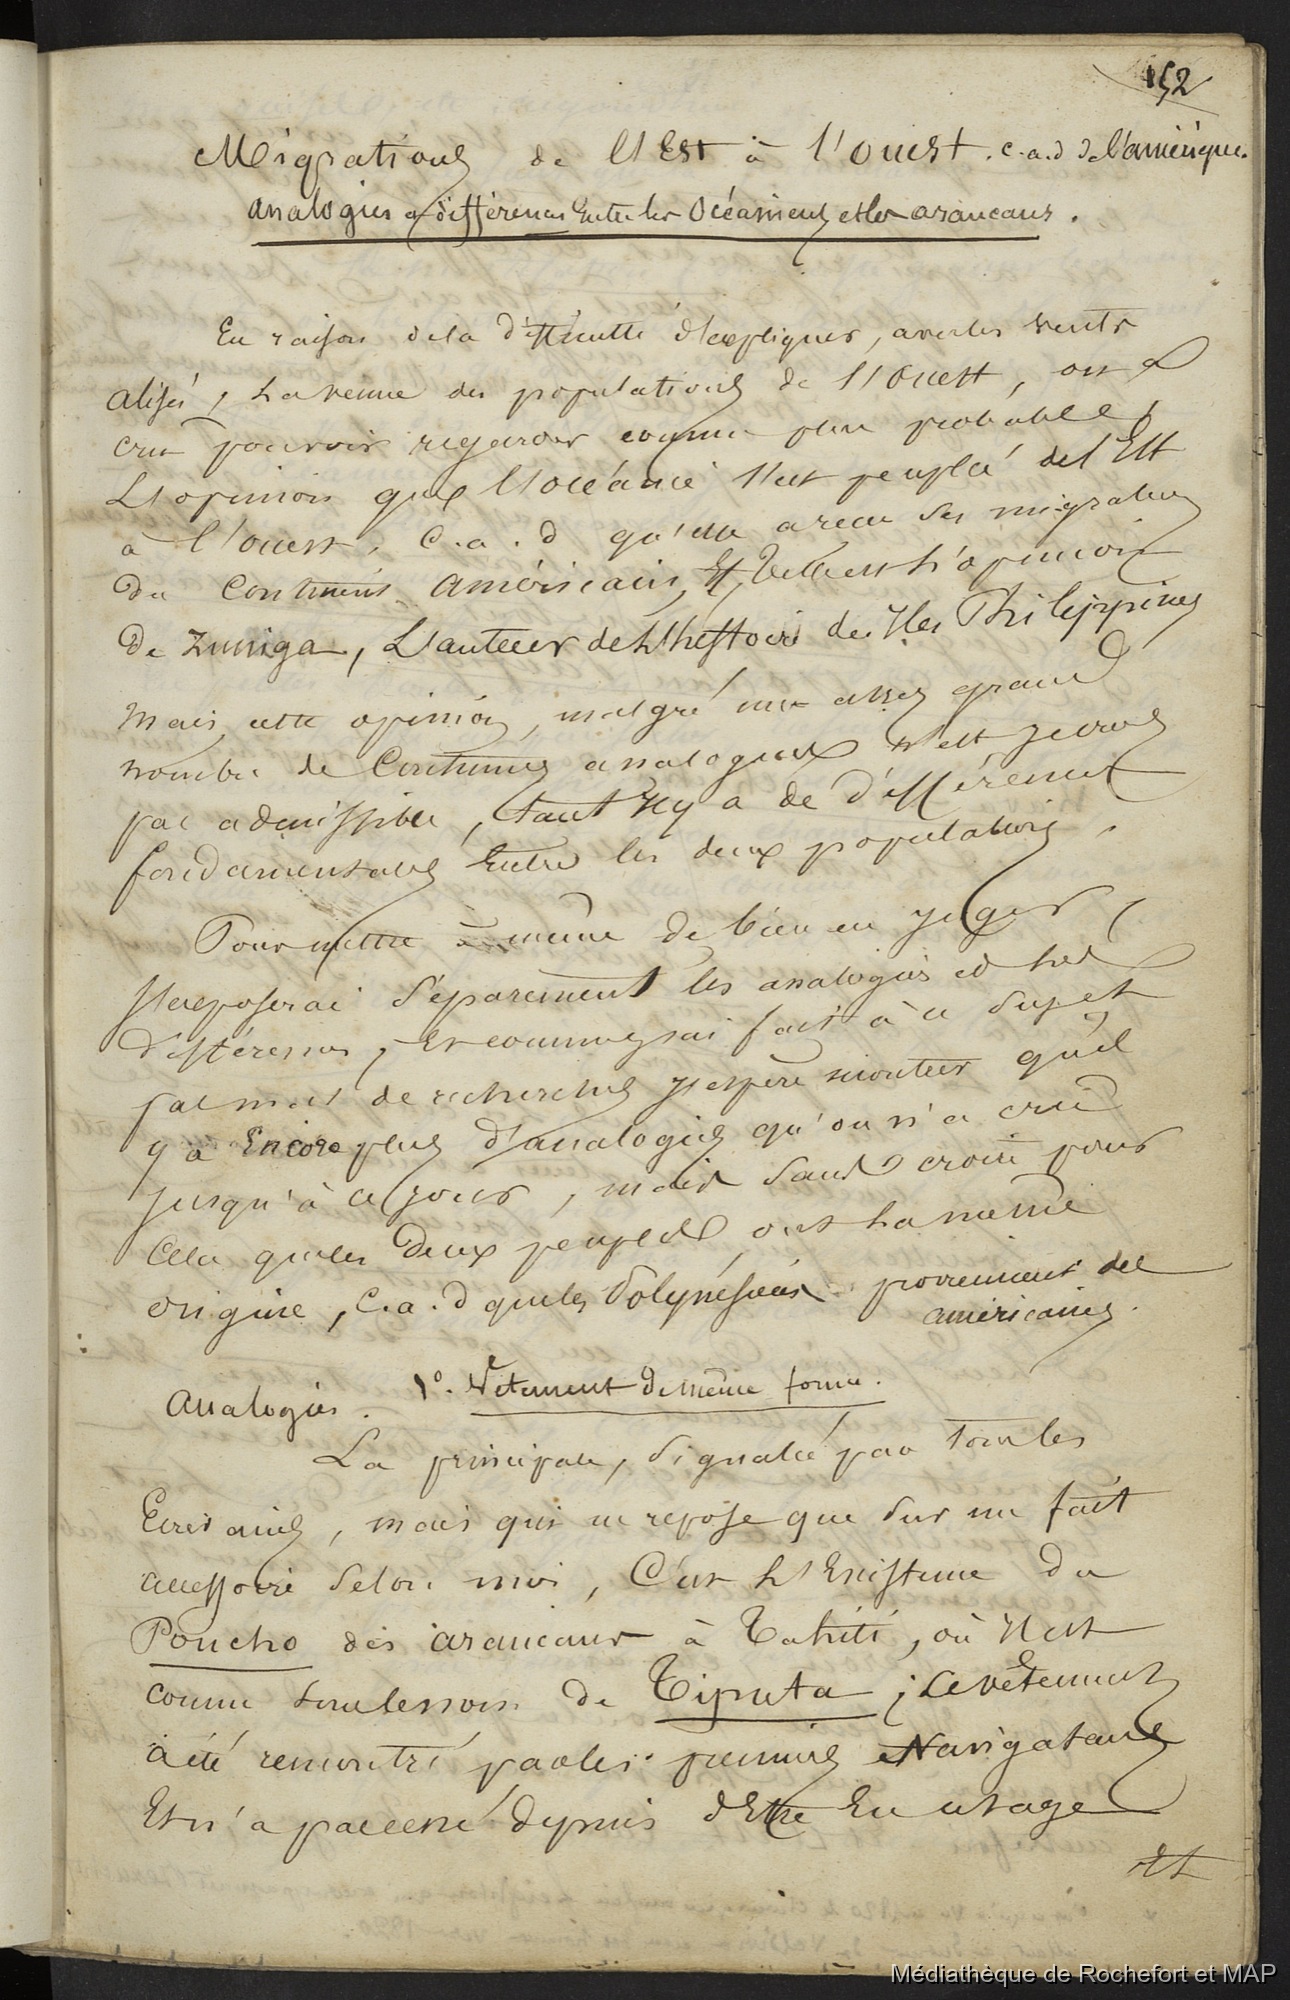 152
Migrations de l'Est à l'ouest. c.a.d de l'amérique.
analogies & différences Entre les Océaniens et les araucans.
En raison de la difficulté d'expliquer, avec les vents
alisés, la venue des populations de l'Ouest, on a
cru pouvoir regarder comme plus probable,
L'opinion que l'océanie s'est peuplé de l'Est
à l'ouest, c.a.d qu'elle a recu ses migrations
du Continent américain, Et telle est l'opinion
de Zuniga, L'auteur de l'histoire des Iles Philippines
Mais cette opinion, malgré un assez grand
nombre de Coutumes analogues n'est je crois
pas admissible, tant il y a de différences
fondamentales Entre les deux populations.
Pour mettre à même de bien en juger,
J'exposerai séparement les analogies et les
différences, Et comme j'ai fait à ce sujet
pas mal de recherches j'espère montrer qu'il
y a Encore plus d'analogies qu'on n'a cru
jusqu'à ce jour, mais sans croire pour
Cela que les deux peuples ont la même
origine, c.a.d que les Polynésiens proviennent des
américains.
analogies. 1°. Vetement de même forme.
La principale, signalée par tous les
Ecrivains, mais qui ne repose que sur un fait
accessoire selon moi, C'est l'Existence du
Poncho des araucans à Tahiti, où il est
connu sous le nom de Tiputa; ce vêtement
a été rencontré par les premiers Navigateurs
Et n'a pas cessé depuis d'Etre En usage
Et
Médiathèque de Rochefort et MAP